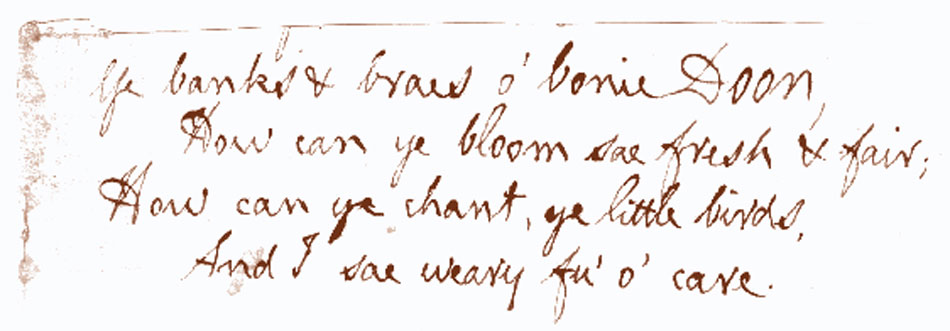 Ye banks & braes o' bonie Doon,
How can ye bloom sae fresh & fair;
How can ye chant, ye little birds,
And I sae weary fu' o' care.